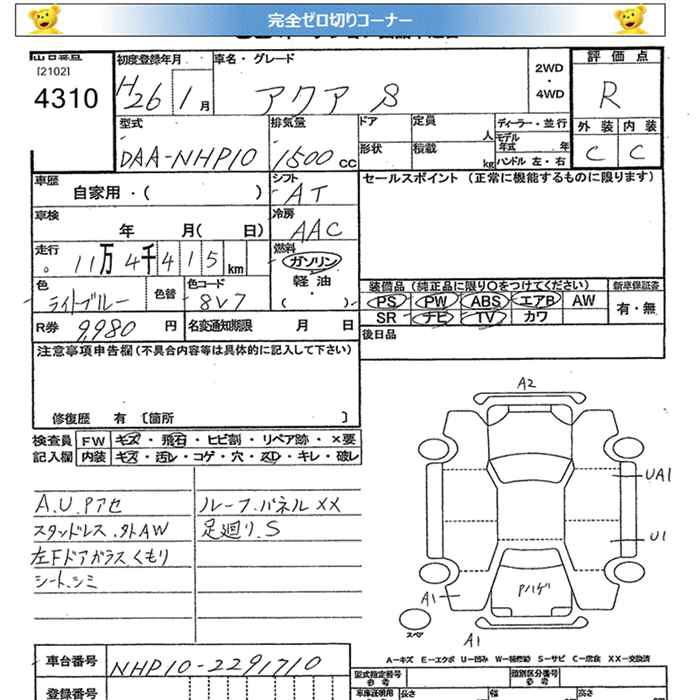 完全ゼロ切りコーナー
[2102]
4310
初度登録年月
H26 1月
車名・グレード
アクア S
2WD
・
4WD
評価点
R
外装 内装
C C
型式
DAA-NHP10
排気量
1500 cc
ドア
定員
人
形状
積載
kg
ディーラー・並行
モデル年式 年
ハンドル 左・右
車歴
自家用・( )
シフト
AT
セールスポイント (正常に機能するものに限ります)
車検
年 月( 日)
冷房
AAC
走行
11万4千415km
燃料
ガソリン
軽油
・
( )
色
ライトブルー
色替
色コード
8V7
装備品(純正品に限り○をつけてください)
PS PW ABS エアB AW
SR ナビ TV カワ
新車保証書
有・無
R券 9,980 円
名変通知期限 月 日
後日品
注意事項申告欄(不具合内容等は具体的に記入して下さい)
修復歴 有〔箇所 〕
検査員記入欄
FW キズ・飛石・ヒビ割・リペア跡・×要
内装 キズ・汚レ・コゲ・穴・スレ・キレ・破レ
A.U.Pアセ
スタッドレス.外AW
左Fドアガラスくもり
シート.シミ
ルーフ.パネルXX
足廻り.S
A2
UA1
U1
Aハゲ
A1
スペア
A1
A-キズ E-エクボ U-凹み W-補修跡 S-サビ C-腐食 XX-交換済
車台番号 NHP10-2291710
登録番号
型式指定番号
参考
類別区分番号
参考
車庫証明用
参考
長さ
幅
高さ